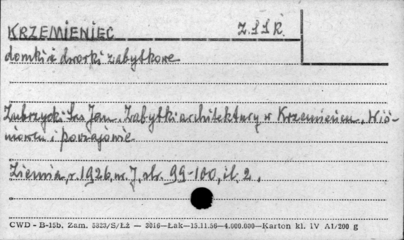 KRZEMIENIEC Z.S.S.R.
domki i dworki zabytkowe
Zubrzycki Jan. Zabytki architektury w Krzemieńcu, Wiś-
niowcu i
Ziemia, r. 1926, nr. 7, str. 99-100, il. 2.
CWD - B-15b. Zam. 5323/S/Łż — 3016—Łak—15.11.56—4.000.000—Karton kl. IV A1/200 g